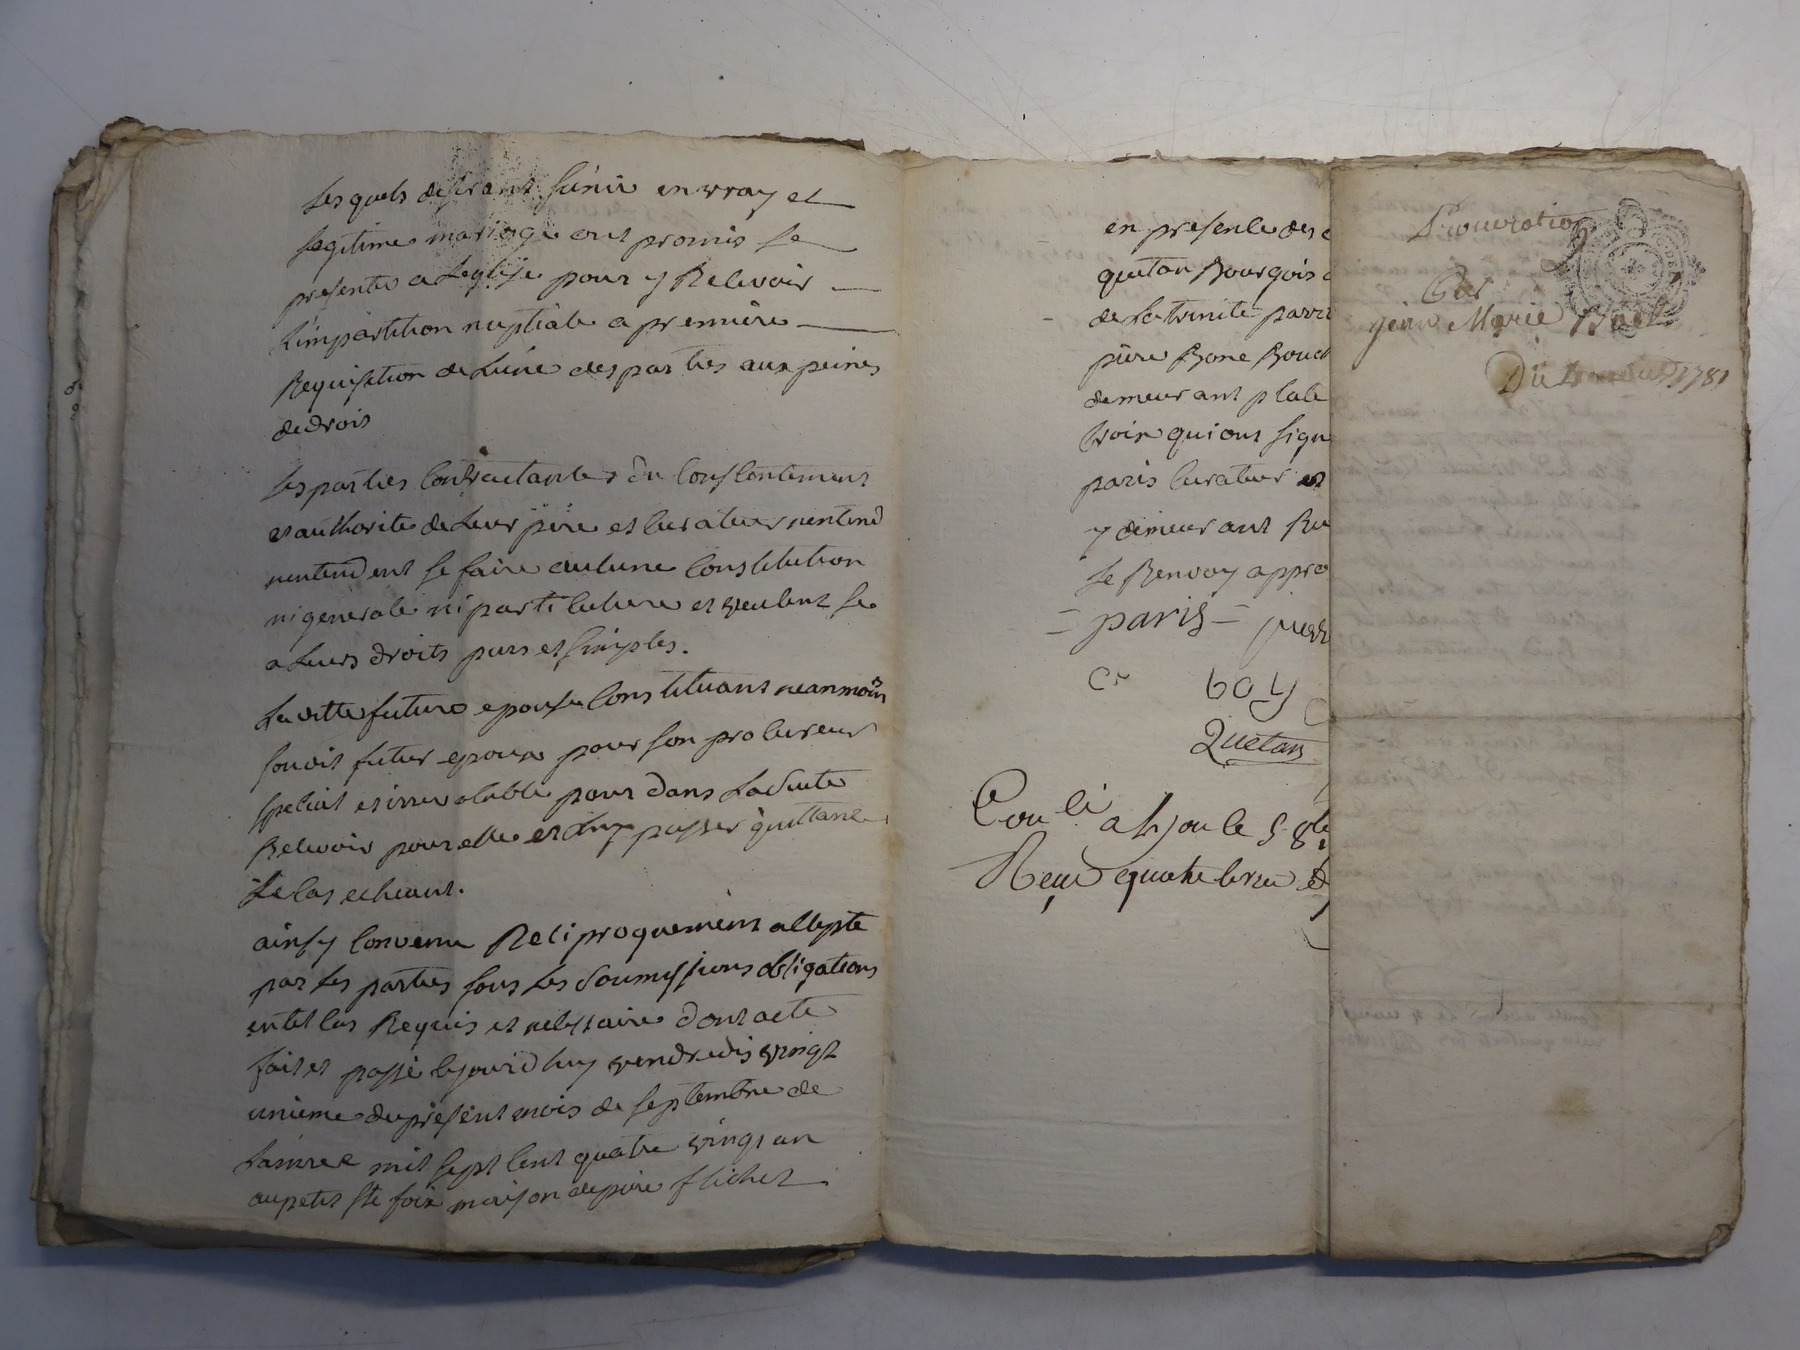 Lesquels desirant s'unir en vray et
legitime mariage ont promis se
presenter a Leglise pour y Recevoir
L'impartition nuptiale a premiere
Requisition de Lune des parties aux peines
de droit
Les parties Contractantes du Consentement
et authorité de Leur père et curateur nentend
nentendent se faire aucune Constitution
ni generale ni particuliere et veulent se
a Leurs droits purs et simples.
Laditte future epouse Constituant neanmoins
sondit futur epoux pour son procureur
special et irrevocable pour dans La Suite
Recevoir pour elle et passer quittance
Le cas echeant.
ainsy Convenu Reciproquement accepté
par Les parties sous Les Soumissions obligations
en tel cas Requis et necessaire dont acte
fait et passé cejourd'huy vendredis vingt
unieme du present mois de septembre de
Lannee mil sept cent quatre vingt un
au petit Ste foix maison de pierre flichet
en presence des
quetan Bourgois
de La trinité parr
pierre Bone
demeurant place
voix qui ont sign
paris curateur et
y demeurant Ru
Le Renvoy appro
= paris =
boy
Quetan
a Lyon le 5 8
Reçu quatre
Procuration
Par
jean Marie
Du 1781